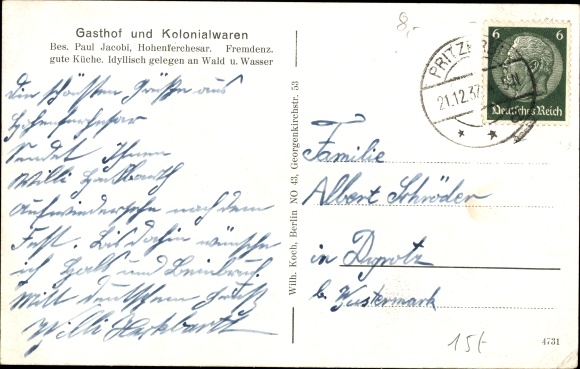 8,-
Gasthof und Kolonialwaren
Bes. Paul Jacobi, Hohenferchesar. Fremdenz.
gute Küche. Idyllisch gelegen an Wald u. Wasser
Die schönsten Grüße aus
Hohenferchesar
Sendet Ihnen
Willi
Aufwiedersehn nach dem
Fest. Bis dahin wünsche
ich Hals und Beinbruch
Mit deutschem Gruß
Willi
Wilh. Koch, Berlin NO 43, Georgenkirchstr. 53
PRITZER
21.12.37
6 6
Deutsches Reich
Familie
Albert Schröder
in Dyrotz
b. Wustermark
15,-
4731